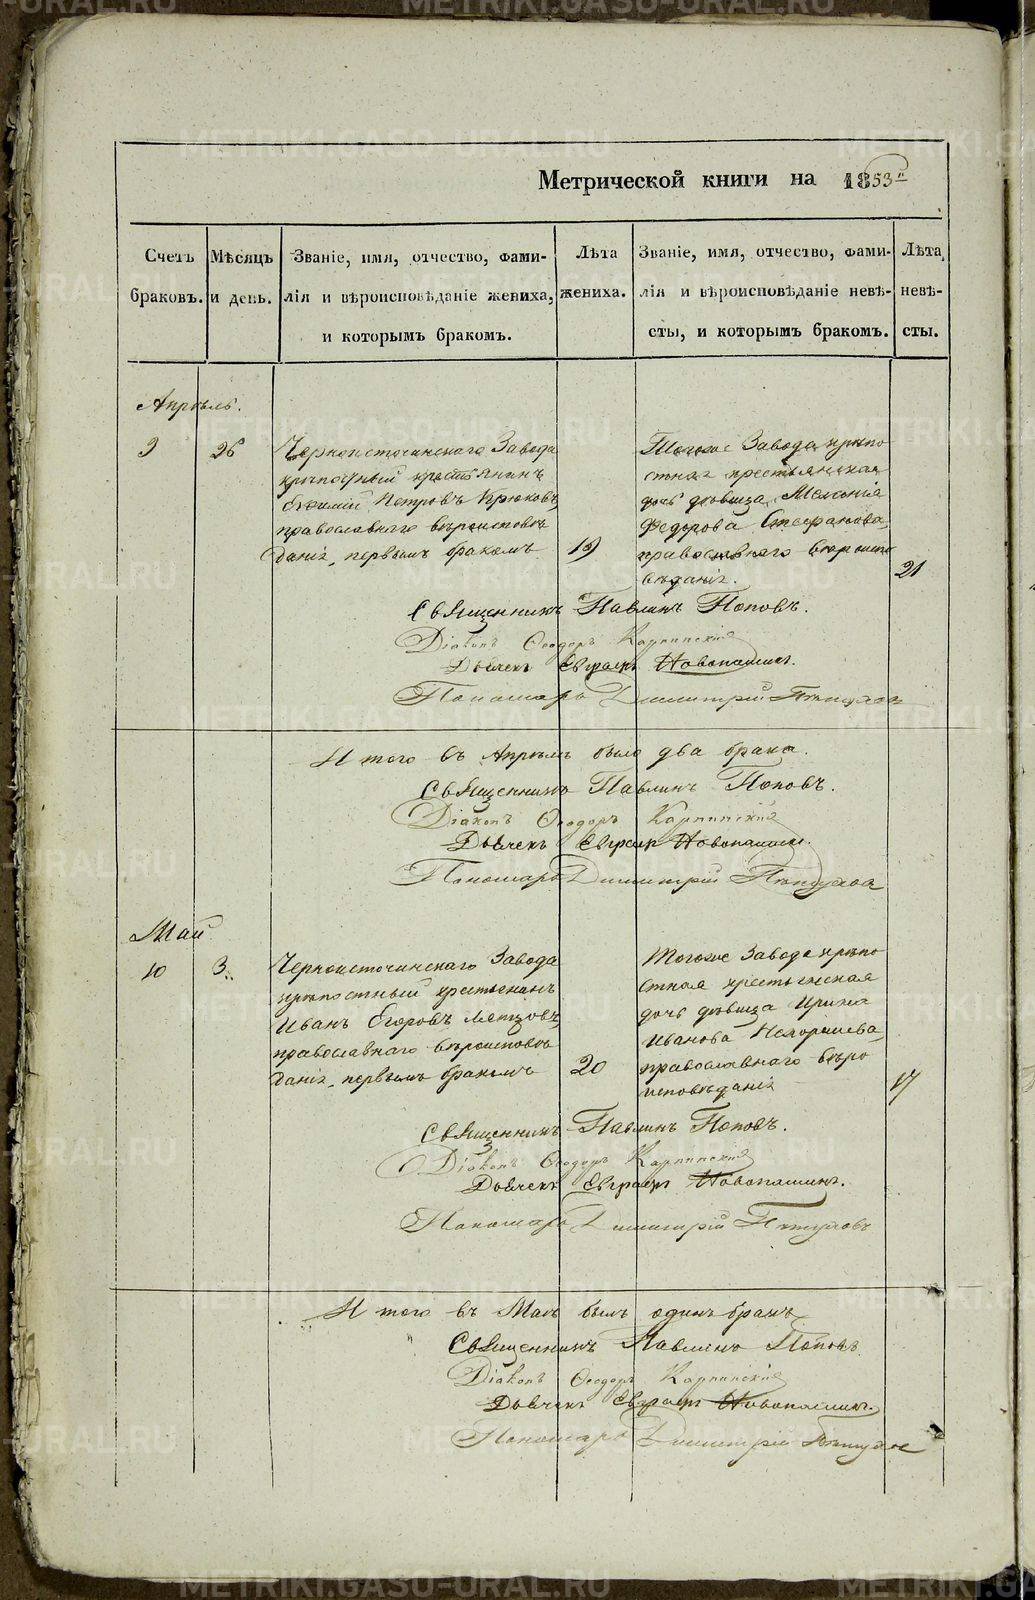 Метрической книги на 1853й
Счетъ браковъ.
Мѣсяцъ и день.
Званіе, имя, отчество, фами-
лія и вѣроисповѣданіе жениха,
и которымъ бракомъ.
Лѣта жениха.
Званіе, имя, отчество, фами-
лія и вѣроисповѣданіе невѣ-
сты, и которымъ бракомъ.
Лѣта невѣ-
сты.
Апрѣль.
9
26
Черноисточинскаго Завода
крѣпостный крестьянинъ
Евѳимій Петровъ Крюковъ,
православнаго вѣроисповѣ
данія, первымъ бракомъ
19
Тогоже Завода крѣпо
стная крестьянская
дочь дѣвица Меланія
Федорова Стефанова,
православнаго вѣроиспо
вѣданія.
21
Священникъ Павлинъ Поповъ.
Діаконъ Ѳеодоръ Карпинскій
Дьячекъ Евграфъ Новопашин.
Пономарь Димитрій Пѣтухов
И того въ Апрѣлѣ было два брака.
Священникъ Павлинъ Поповъ.
Діаконъ Ѳеодоръ Карпинскій
Дьячекъ Евграфъ Новопашин.
Пономарь Димитрій Пѣтухов
Май
10
3.
Черноисточинскаго Завода
крѣпостный крестьянинъ
Иванъ Егоровъ
православнаго вѣроисповѣ
данія, первымъ бракомъ
20
Тогоже Завода крѣпо
стная крестьянская
дочь дѣвица Ирина
Иванова
православнаго вѣро
исповѣданія
17
Священникъ Павлинъ Поповъ.
Діаконъ Ѳеодоръ Карпинскій
Дьячекъ Евграфъ Новопашинъ.
Пономарь Димитрій Пѣтуховъ
И того въ Маѣ былъ одинъ бракъ
Священникъ Павлинъ Поповъ
Діаконъ Ѳеодоръ Карпинскій
Дьячекъ Евграфъ Новопашин.
Пономарь Димитрій Пѣтухов
METRIKI.GASO-URAL.RU